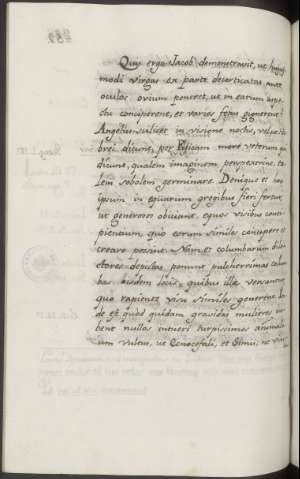 Quis ergo Jacob demonstravit, ut hujus
modi virgas ex parte decorticatas ante
oculos ovium poneret, ut in earum aspe
ctu conciperent, et varios fetus gignerent?
Angelus scilicet in visione noctis, vel ut He
brei dicunt, per
dicunt, qualem imaginem perspexerint, ta
lem sobolem germinare. Denique et hoc
ipsum in equarum gregibus fieri fertur,
ut generosos obiiciant equos visibus conci
pientium, quo eorum similes concipere et
creare possint. Nam et columbarum dile
ctores depictas ponunt pulcherrimas colum
bas eisdem locis, quibus illæ versantur
quo rapientes visu similes generent. In
de est quod quidam gravidas mulieres iu
bent nullos intueri turpissimos animali
um vultus, ut Cenocefali, et Simii, ne visi